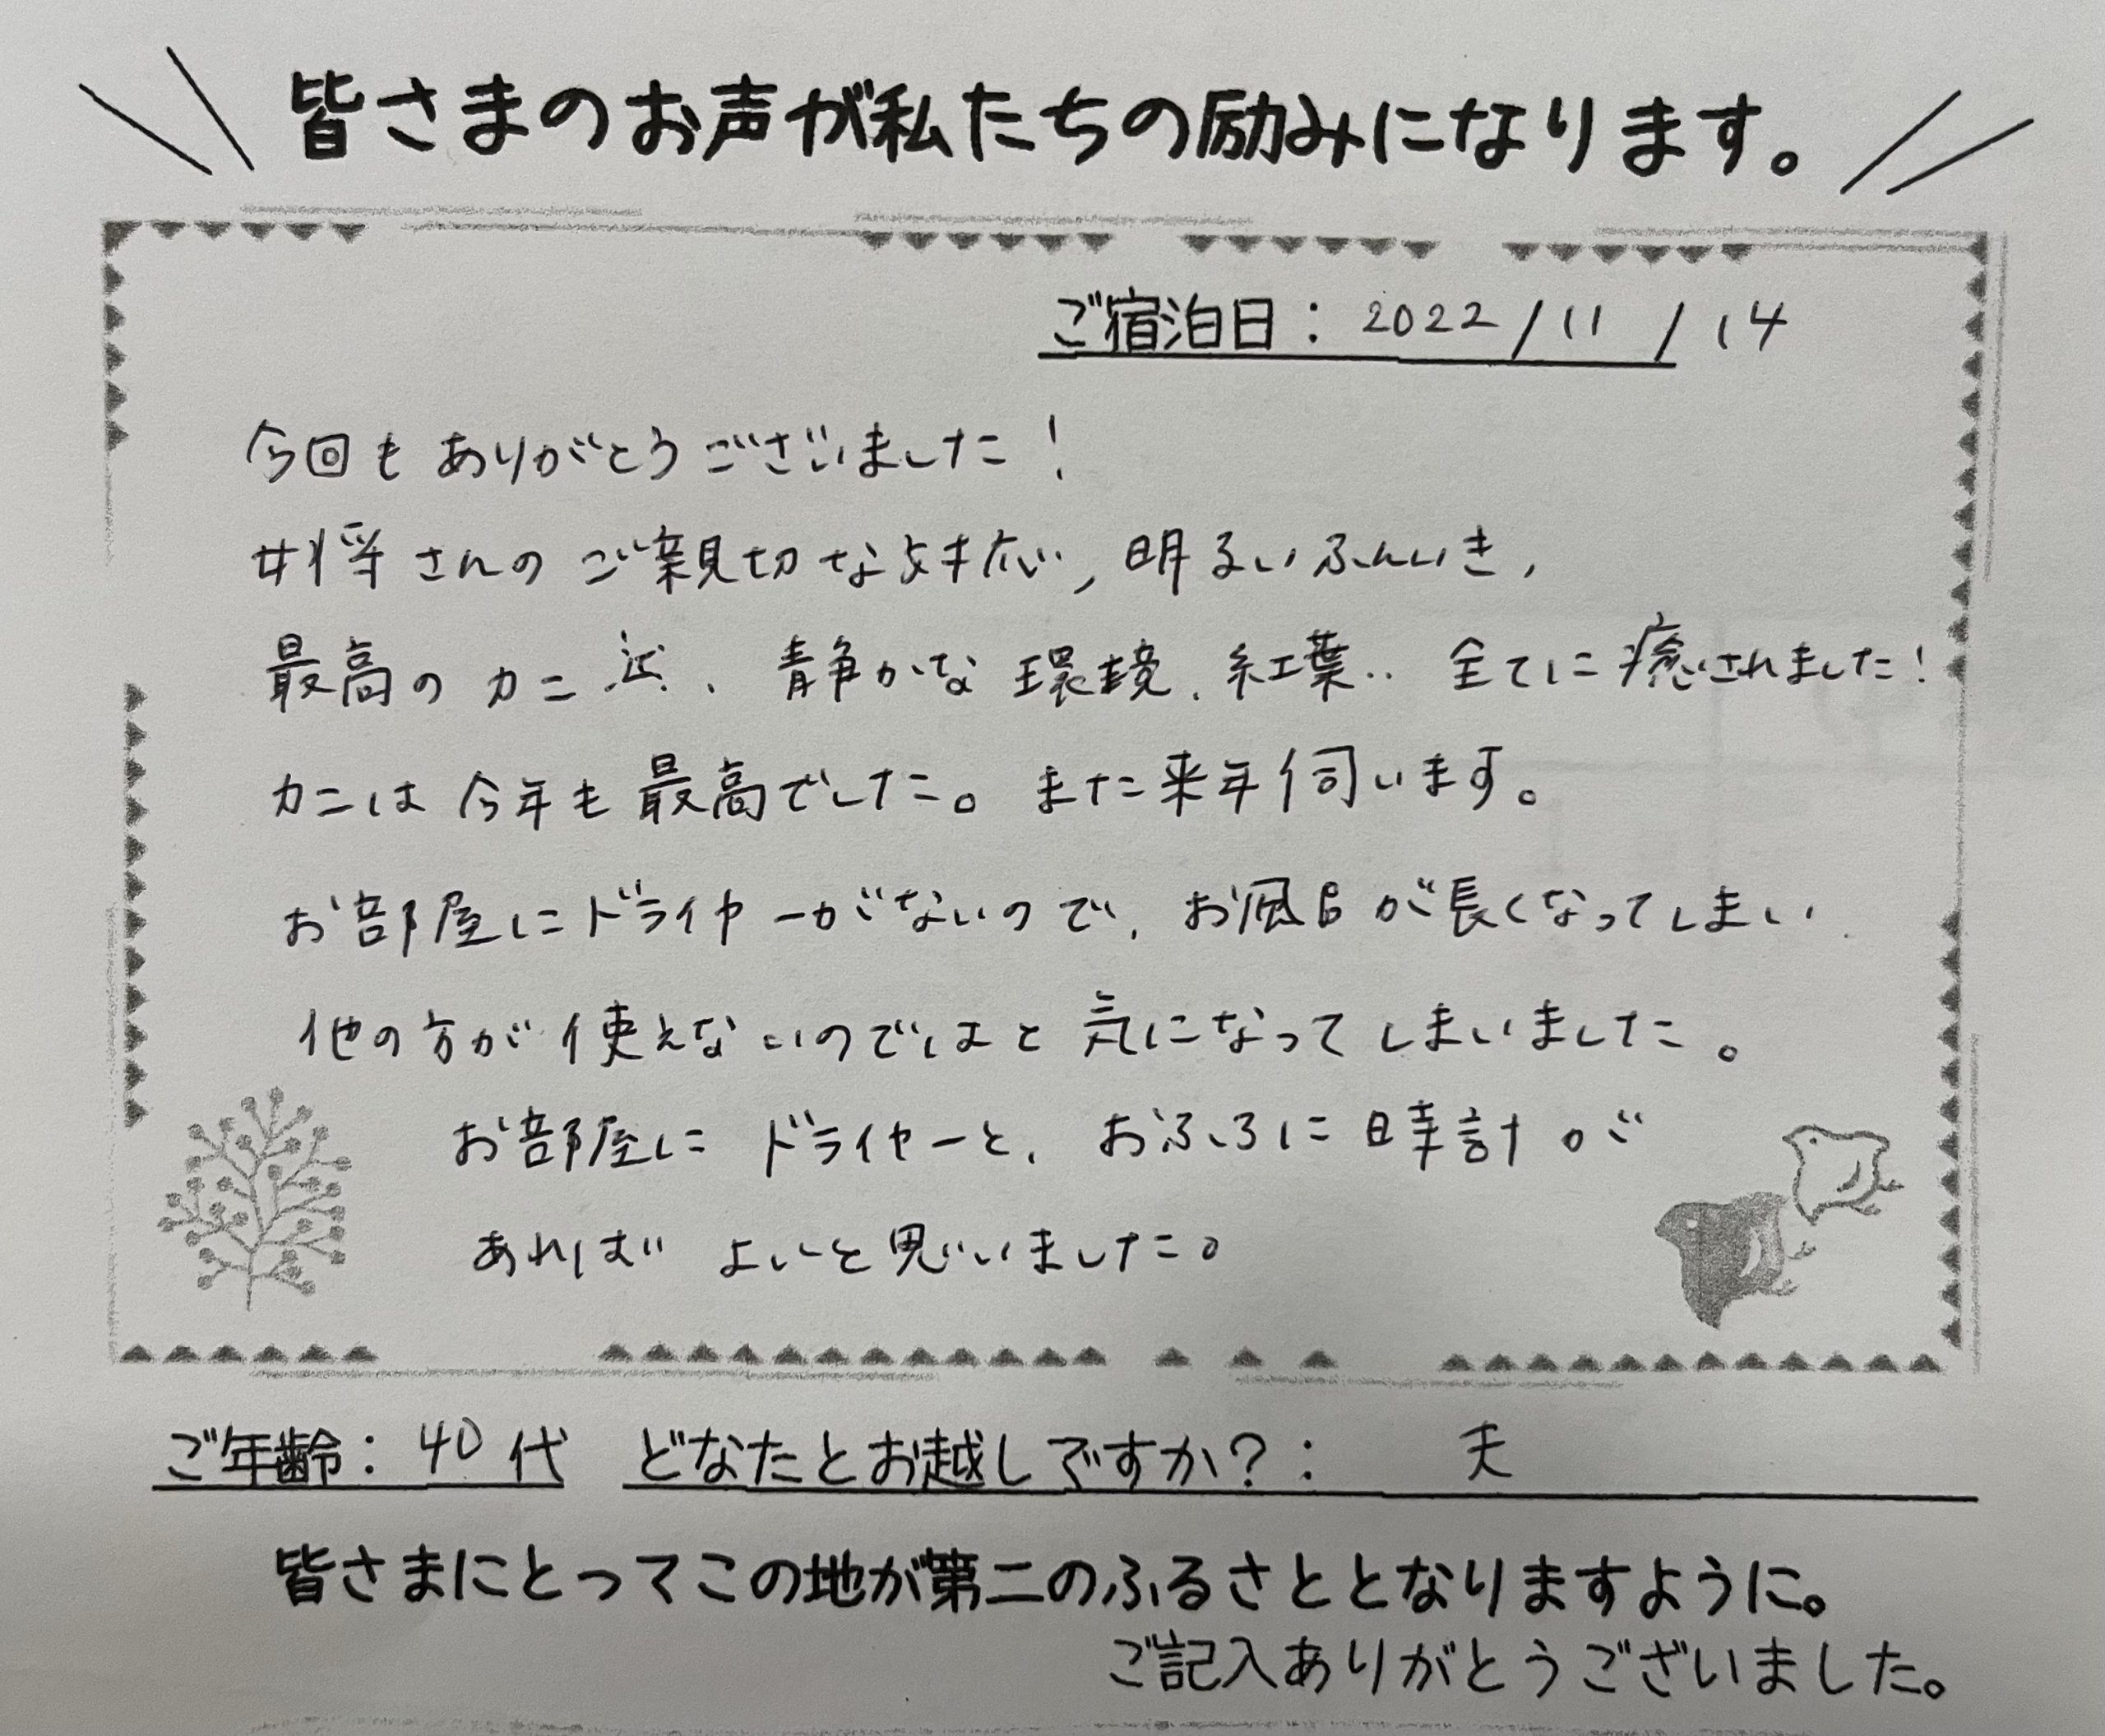 皆さまのお声が私たちの励みになります。
ご宿泊日：2022/11/14
今回もありがとうございました！
女将さんのご親切な対応、明るいふんいき、
最高のカニ、静かな環境、紅葉‥全てに癒されました！
カニは今年も最高でした。また来年伺います。
お部屋にドライヤーがないので、お風呂が長くなってしまい
他の方が使えないのではと気になってしまいました。
お部屋にドライヤーと、おふろに時計が
あればよいと思いました。
ご年齢：40代 どなたとお越しですか？：夫
皆さまにとってこの地が第二のふるさととなりますように。
ご記入ありがとうございました。